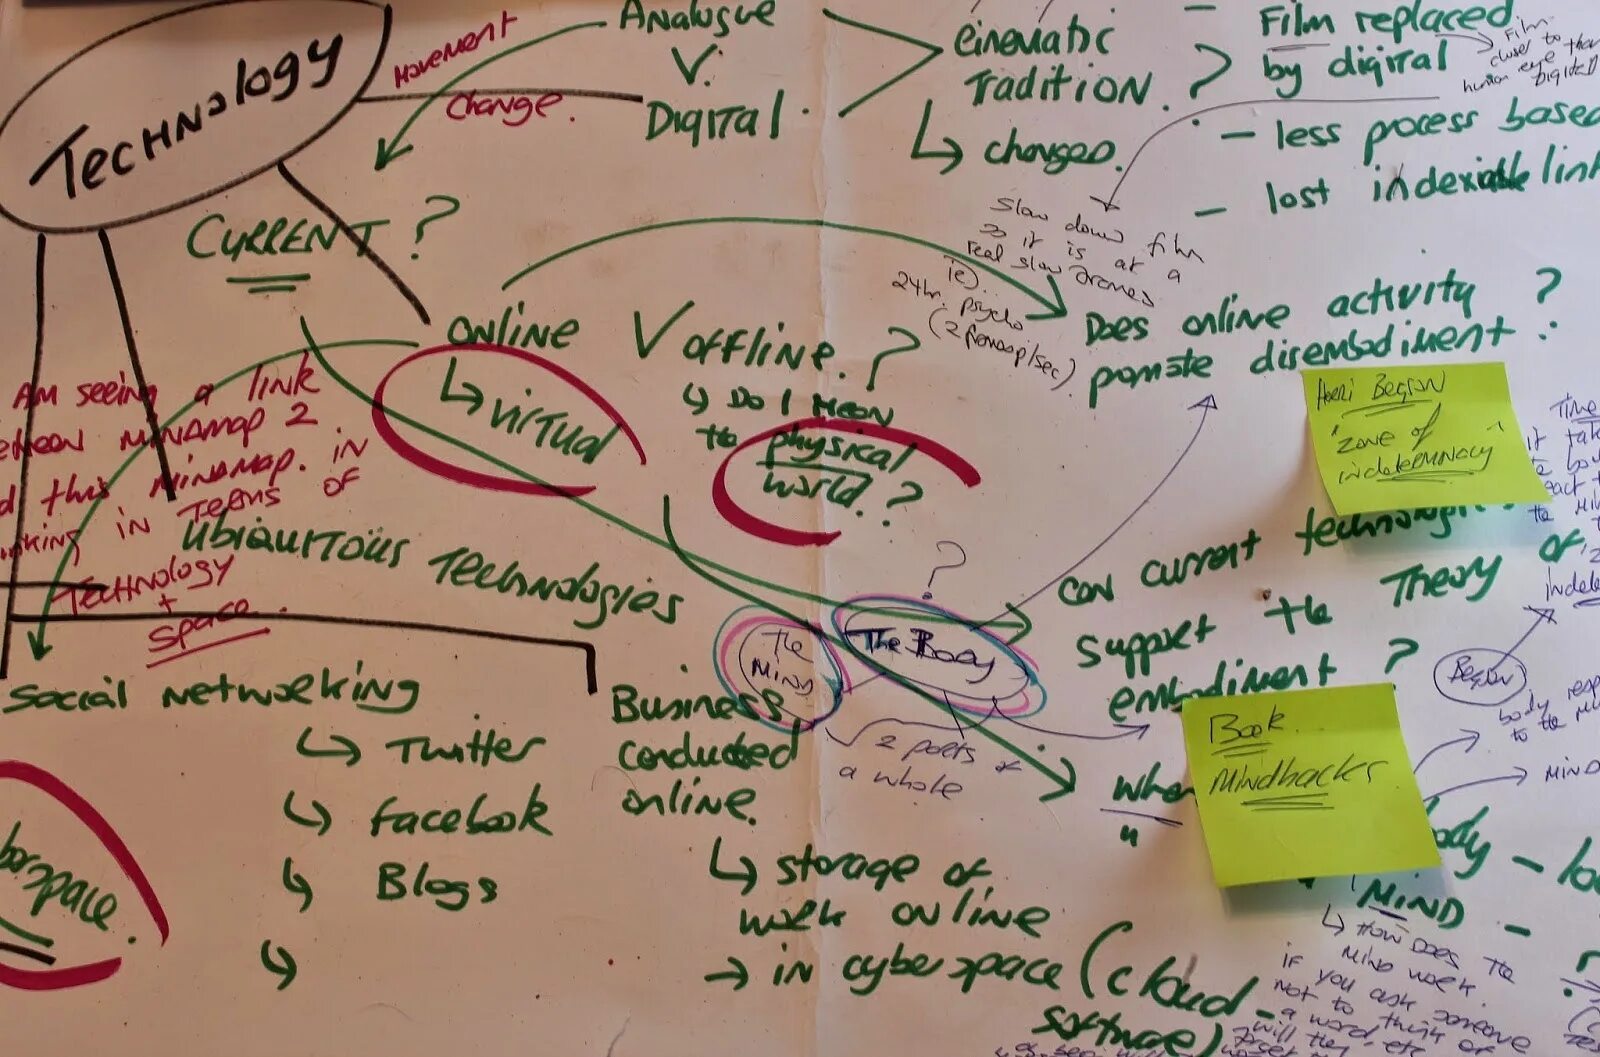 Technology
Movement
Change.
Analogue
V.
Digital.
Cinematic
Tradition. ?
↳ changed.
- Film replaced
by digital
Film
closer to
human eye than
Digital
- less process based
- lost indexiable link
Slow down film
so it is at a
real slow
ie).
24hr. psycho
(2 frames/sec)
Current?
Online V offline.?
↳ virtual
↳ Do I mean
the physical
world.?
Does online activity ?
promote disembodiment :
Am seeing a link
mindmap 2
this mindmap. in
in terms of
Technology
+
Space.
Ubiquitous Technologies
Henri Begson
'Zone of
indeterminacy'
Time
Can current
support the Theory of
embodiment ?
?
The
Mind
The Body
2 parts of
a whole
Begson
body
to the
Mind
Social networking
↳ Twitter
↳ facebook
↳ Blogs
Business
conducted
online.
↳ storage of
work online
→ in cyberspace (cloud -
software)
Book.
Mindhacks
Mind -
↳ How does the
mind work.
if you ask someone
not to think of
a word,
will they